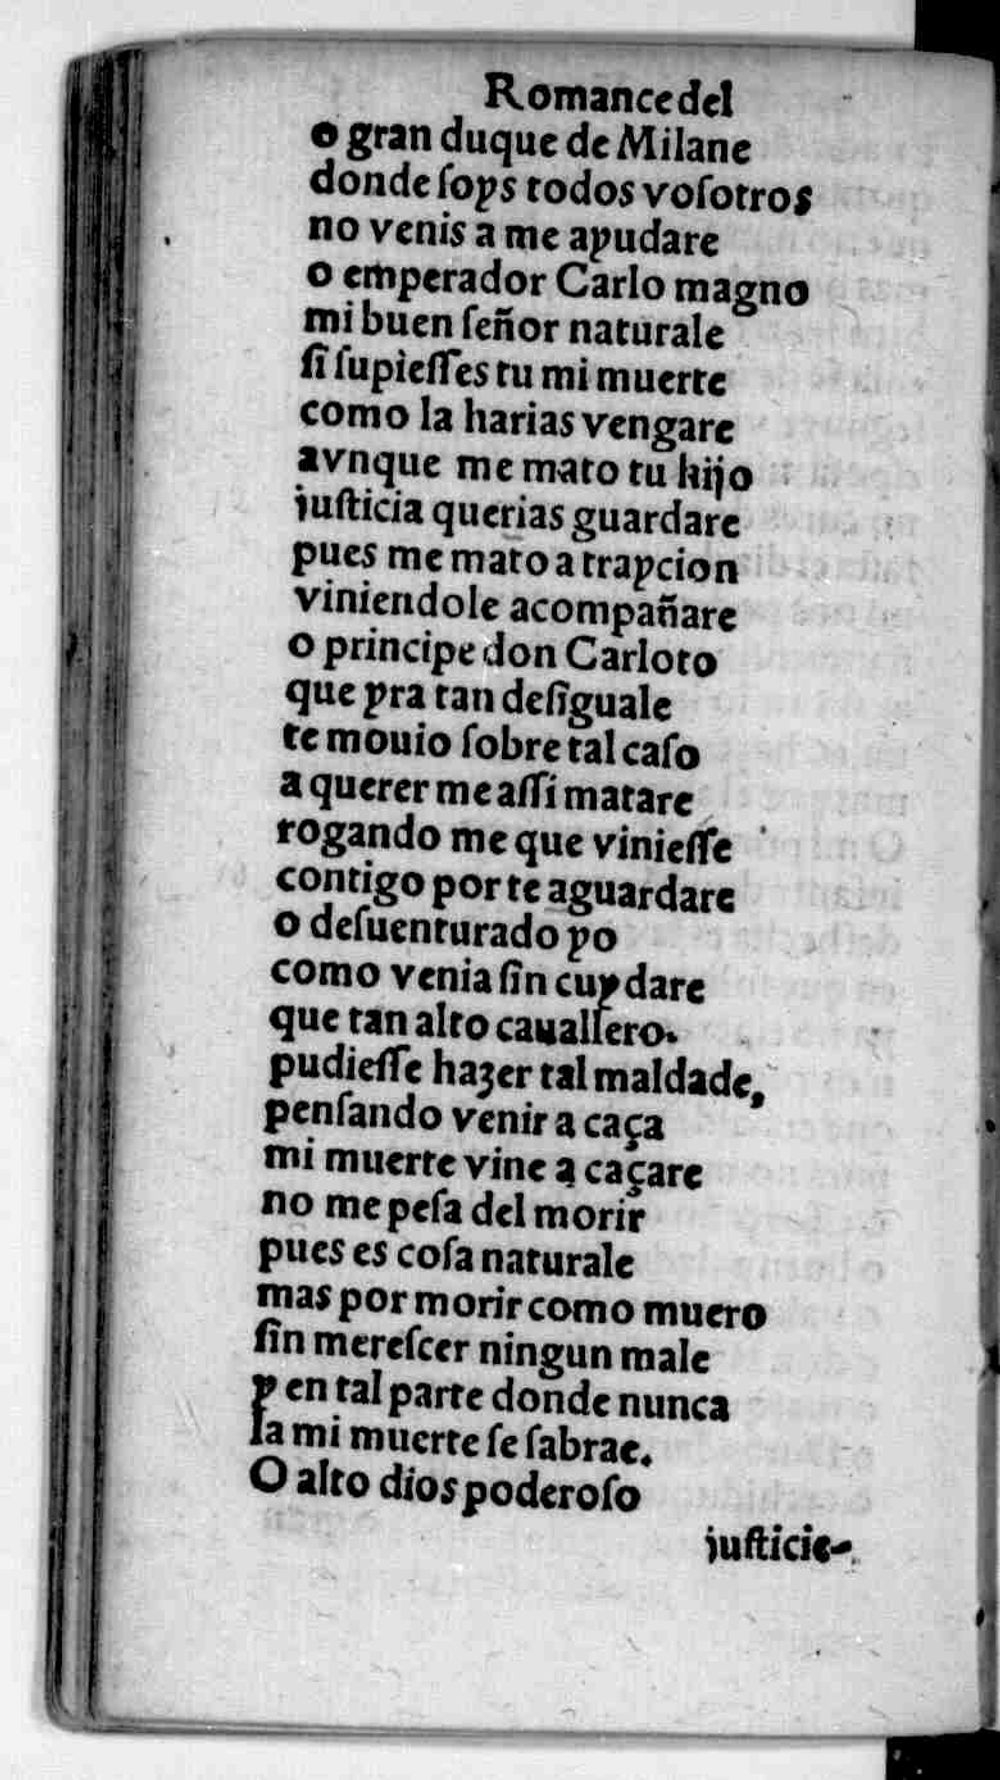 Romance del
o gran duque de Milane
donde ſoys todos voſotros
no venis a me ayudare
o emperador Carlo magno
mi buen ſeñor naturale
ſi ſupieſſes tu mi muerte
como la harias vengare
avnque me mato tu hijo
juſticia querias guardare
pues me mato a traycion
viniendole acompañare
o principe don Carloto
que yra tan deſiguale
te mouio ſobre tal caſo
a querer me aſſi matare
rogando me que vinieſſe
contigo por te aguardare
o deſuenturado yo
como venia ſin cuydare
que tan alto cauallero.
pudieſſe hazer tal maldade,
penſando venir a caça
mi muerte vine a caçare
no me peſa del morir
pues es coſa naturale
mas por morir como muero
ſin mereſcer ningun male
y en tal parte donde nunca
la mi muerte ſe ſabrae.
O alto dios poderoſo
juſticie-